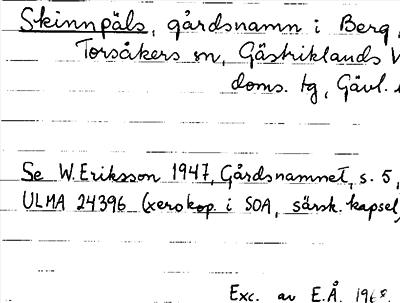 Skinnpäls, gårdsnamn i Berg,
Torsåkers sn, Gästriklands V
doms. tg, Gävl.
Se W. Eriksson 1947, Gårdsnamnet, s. 5,
ULMA 24396 (xerokop. i SOA, särsk. kapsel)
Exc. av E.Å. 1968.